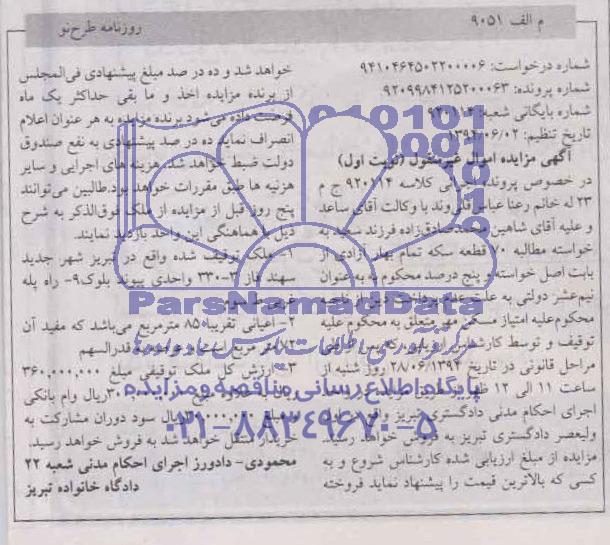 م الف ۹۰۵۱
روزنامه طرح‌نو
شماره درخواست: ۹۴۱۰۴۶۴۵۰۲۲۰۰۰۰۶
شماره پرونده: ۹۲۰۹۹۸۴۱۲۵۲۰۰۰۶۳
شماره بایگانی شعبه: ۹۲۰۱۱۴
تاریخ تنظیم: ۱۳۹۴/۰۶/۰۲
آگهی مزایده اموال غیرمنقول (نوبت اول)
در خصوص پرونده اجرائی کلاسه ۹۲۰۱۱۴ ج م
۲۳ له خانم رعنا عباس با وکالت آقای ساعد
و علیه آقای شاهین محمدصادق‌زاده فرزند سعید به
خواسته مطالبه ۷۰ قطعه سکه تمام بهار آزادی از
بابت اصل خواسته و پنج درصد محکوم به به عنوان
نیم‌عشر دولتی به علت عدم پرداخت دین از ناحیه
محکوم‌علیه امتیاز مسکن مهر متعلق به محکوم علیه
توقیف و توسط کارشناس ارزیابی که پس از طی
مراحل قانونی در تاریخ ۲۸/۰۶/۱۳۹۴ روز شنبه از
ساعت ۱۱ الی ۱۲ ظهر
اجرای احکام مدنی دادگستری تبریز واقع در اول
ولیعصر دادگستری تبریز به فروش خواهد رسید.
مزایده از مبلغ ارزیابی شده کارشناس شروع و به
کسی که بالاترین قیمت را پیشنهاد نماید فروخته
خواهد شد و ده در صد مبلغ پیشنهادی فی‌المجلس
از برنده مزایده اخذ و ما بقی حداکثر یک ماه
فرصت داده می‌شود برنده مزایده به هر عنوان اعلام
انصراف نماید ده در صد پیشنهادی به نفع صندوق
دولت ضبط خواهد شد. هزینه های اجرایی و سایر
هزنیه ها طبق مقررات خواهد بود.طالبین می‌توانند
پنج روز قبل از مزایده از ملک فوق‌الذکر به شرح
ذیل با هماهنگی این واحد بازدید نمایند.
۱- ملک توقیف شده واقع در تبریز شهر جدید
سهند فاز ۳-۳۳۰ واحدی پیوند بلوک۹- راه پله
۲- اعیانی تقریبا ۸۵ مترمربع می‌باشد که مفید آن
متر مربع است و عرصه به قدرالسهم
۳- ارزش کل ملک توقیفی مبلغ ۳۶۰,۰۰۰,۰۰۰
ریال وام بانکی
ریال سود دوران مشارکت به
خریدار منتقل خواهد شد به فروش خواهد رسید.
محمودی- دادورز اجرای احکام مدنی شعبه ۲۲
دادگاه خانواده تبریز
ParsNamadData
مرکز فرآوری اطلاعات پارس نماد داده ها
پایگاه اطلاع رسانی مناقصه و مزایده
۰۲۱-۸۸۳۴۹۶۷۰-۵